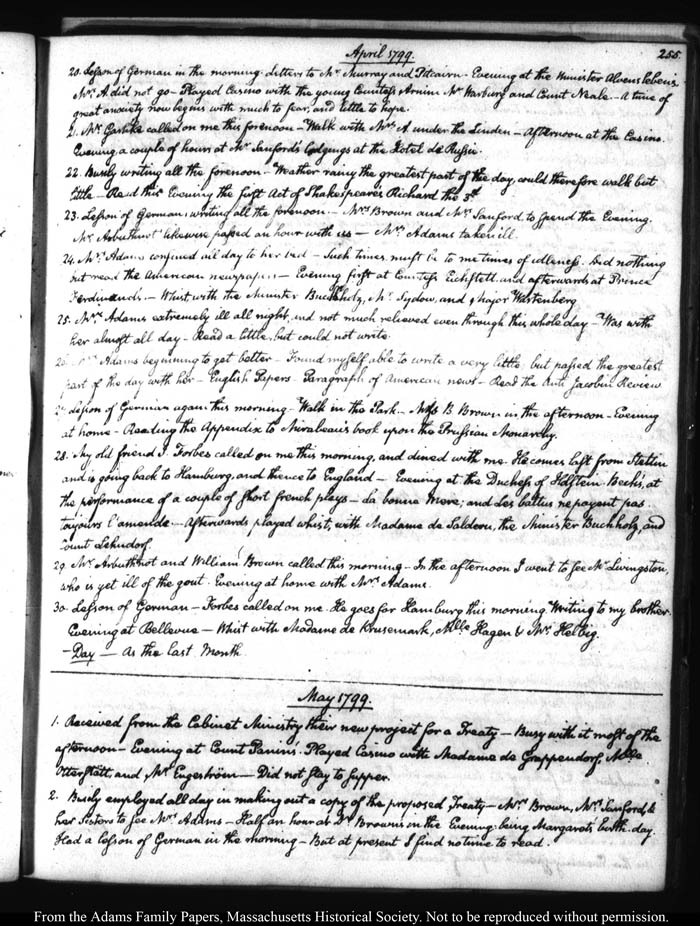 April 1799.
255.
20. Lesson of German in the morning. Letters to Mr Murray and Pitcairn. Evening at the Minister Alvenslebens.
Mrs A. did not go – Played Casino with the young Countess Arnim Mr Warburg and Count Neale. – A time of
great anxiety now begins with much to fear, and little to hope.
21. Mr Garlike called on me this forenoon – Walk with Mrs A under the Linden – Afternoon at the Casino.
Evening a couple of hours at Mr Sanford's lodgings at the Hotel de Russie.
22. Busily writing all the forenoon – Weather rainy the greatest part of the day, could therefore walk but
little – Read this Evening the first Act of Shakespeare's Richard the 3d
23. Lesson of German; writing all the forenoon. – Mrs Brown and Mrs Sanford to spend the Evening.
Mr Arbuthnot likewise passed an hour with us – Mrs Adams taken ill.
24. Mrs Adams confined all day to her bed – Such times must be to me times of idleness. Did nothing
but read the American newspapers – Evening first at Countess Eichstett and afterwards at Prince
Ferdinand's. – Whist with the Minister Buchholz, Mr Sydow, and Major Wartenberg
25. Mrs Adams extremely ill all night, and not much relieved even through this whole day – Was with
her almost all day – Read a little, but could not write.
26. Mrs Adams beginning to get better – Found myself able to write a very little; but passed the greatest
part of the day with her – English Papers – Paragraph of American news – Read the Anti Jacobin Review
27. Lesson of German again this morning – Walk in the Park – Miss B Brown in the afternoon – Evening
at home – Reading the Appendix to Mirabeau's book upon the Prussian Monarchy.
28. My old friend J. Forbes called on me this morning, and dined with me. He comes last from Stettin
and is going back to Hamburg, and thence to England – Evening at the Duchess of Holstein-Beck's, at
the performance of a couple of short french plays – la bonne Mere; and Les battus ne payent pas
toujours l'amende. – Afterwards played whist, with Madame de Saldern, the Minister Buchholz, and
Count Lehndorf.
29. Mr Arbuthnot and William Brown called this morning – In the afternoon I went to see Mr Livingston,
who is yet ill of the gout. Evening at home with Mrs Adams.
30. Lesson of German – Forbes called on me. He goes for Hamburg this morning. Writing to my brother.
Evening at Bellevue – Whist with Madame de Krusemark, Mlle Hagen & Mr Helbig.
– Day – As the last Month.
May 1799.
1. Received from the Cabinet Ministry their new project for a Treaty – Busy with it most of the
afternoon – Evening at Count Panin's. Played Casino with Madame de Grappendorf, Mlle
Otterstätt, and Mr Engeström – Did not stay to supper.
2. Busily employed all day in making out a copy of the proposed Treaty – Mrs Brown, Mrs Sanford, &
her Sisters to see Mrs Adams – Half an hour at Dr Brown's in the Evening: being Margaret's birth-day.
Had a lesson of German in the morning – But at present I find no time to read.
From the Adams Family Papers, Massachusetts Historical Society. Not to be reproduced without permission.